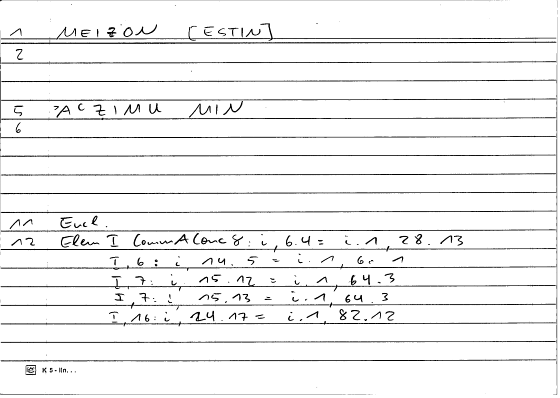 1 MEIZON [ESTIN]
2
5 >AC ZIMU MIN
6
11 Eucl.
12 Elem I CommAConc 8: i, 6.4 = i.1, 28.13
I, 6: i, 14.5 = i.1, 6. 1
I, 7: i, 15.12 = i.1, 64.3
I, 7: i, 15.13 = i.1, 64.3
I, 16: i, 24.17 = i.1, 82.12
K 5 - lin. . .